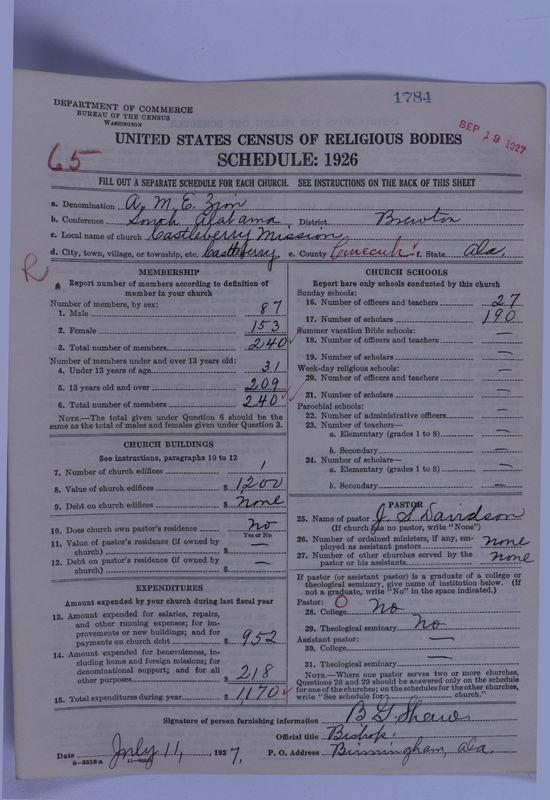 1784
DEPARTMENT OF COMMERCE
BUREAU OF THE CENSUS
WASHINGTON
SEP 19 1927
UNITED STATES CENSUS OF RELIGIOUS BODIES
65
SCHEDULE: 1926
FILL OUT A SEPARATE SCHEDULE FOR EACH CHURCH. SEE INSTRUCTIONS ON THE BACK OF THIS SHEET
a. Denomination A. M. E. Zion
b. Conference South Alabama District Brewton
c. Local name of church Castleberry Mission
d. City, town, village, or township, etc. Castleberry e. County Conecuh f. State Ala.
R
MEMBERSHIP
Report number of members according to definition of
member in your church
Number of members, by sex:
1. Male 87
2. Female 153
3. Total number of members 240
Number of members under and over 13 years old:
4. Under 13 years of age 31
5. 13 years old and over 209
6. Total number of members 240
NOTE.—The total given under Question 6 should be the
same as the total of males and females given under Question 3.
CHURCH BUILDINGS
See instructions, paragraphs 10 to 12
7. Number of church edifices 1
8. Value of church edifices $ 1,200
9. Debt on church edifices $ none
10. Does church own pastor's residence No
Yes or No
11. Value of pastor's residence (if owned by
church) $ —
12. Debt on pastor's residence (if owned by
church) $ —
EXPENDITURES
Amount expended by your church during last fiscal year
13. Amount expended for salaries, repairs,
and other running expenses; for im-
provements or new buildings; and for
payments on church debt $ 952
14. Amount expended for benevolences, in-
cluding home and foreign missions; for
denominational support; and for all
other purposes $ 218
15. Total expenditures during year $ 1,170
CHURCH SCHOOLS
Report here only schools conducted by this church
Sunday schools:
16. Number of officers and teachers 27
17. Number of scholars 190
Summer vacation Bible schools:
18. Number of officers and teachers —
19. Number of scholars —
Week-day religious schools:
20. Number of officers and teachers —
21. Number of scholars —
Parochial schools:
22. Number of administrative officers —
23. Number of teachers—
a. Elementary (grades 1 to 8) —
b. Secondary —
24. Number of scholars—
a. Elementary (grades 1 to 8) —
b. Secondary —
PASTOR
25. Name of pastor J. S. Davidson
(If church has no pastor, write "None")
26. Number of ordained ministers, if any, em-
ployed as assistant pastors none
27. Number of other churches served by the
pastor or his assistants none
If pastor (or assistant pastor) is a graduate of a college or
theological seminary, give name of institution below. (If
not a graduate, write "No" in the space indicated.)
Pastor: O
28. College No
29. Theological seminary No
Assistant pastor: —
30. College
31. Theological seminary —
NOTE.—Where one pastor serves two or more churches,
Questions 28 and 29 should be answered only on the schedule
for one of the churches; on the schedules for the other churches,
write "See schedule for church."
Signature of person furnishing information B G Shaw
Official title Bishop.
Date July 11, 1927. P. O. Address Birmingham, Ala.
8-5318a